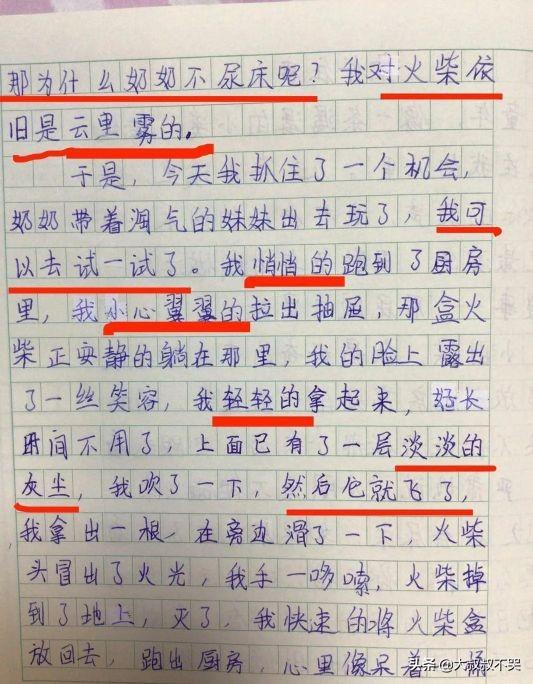 那为什么奶奶不尿床呢？我对火柴依
旧是云里雾的。
于是，今天我抓住了一个机会，
奶奶带着淘气的妹妹出去玩了，我可
以去试一试了。我悄悄的跑到了厨房
里，我小心翼翼的拉出抽屉，那盒火
柴正安静的躺在那里，我的脸上露出
了一丝笑容，我轻轻的拿起来，经长
时间不用了，上面已有了一层淡淡的
灰尘，我吹了一下，然后它就飞了，
我拿出一根，在旁边滑了一下，火柴
头冒出了火光，我手一哆嗦，火柴掉
到了地上，灭了，我快速的将火柴盒
放回去，跑出厨房，心里像呆着一桶
头条 @大叔叔不哭